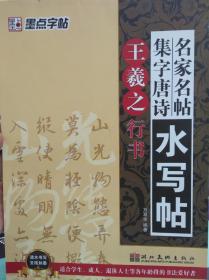 墨点字帖
名家名帖
集字唐诗
水写帖
王羲之行书
山光物態弄春
莫為輕陰便擬
縱使晴明無雨
入雲深處亦
适合学生、成人、退休人士等各年龄段的书法爱好者
湖北美术出版社